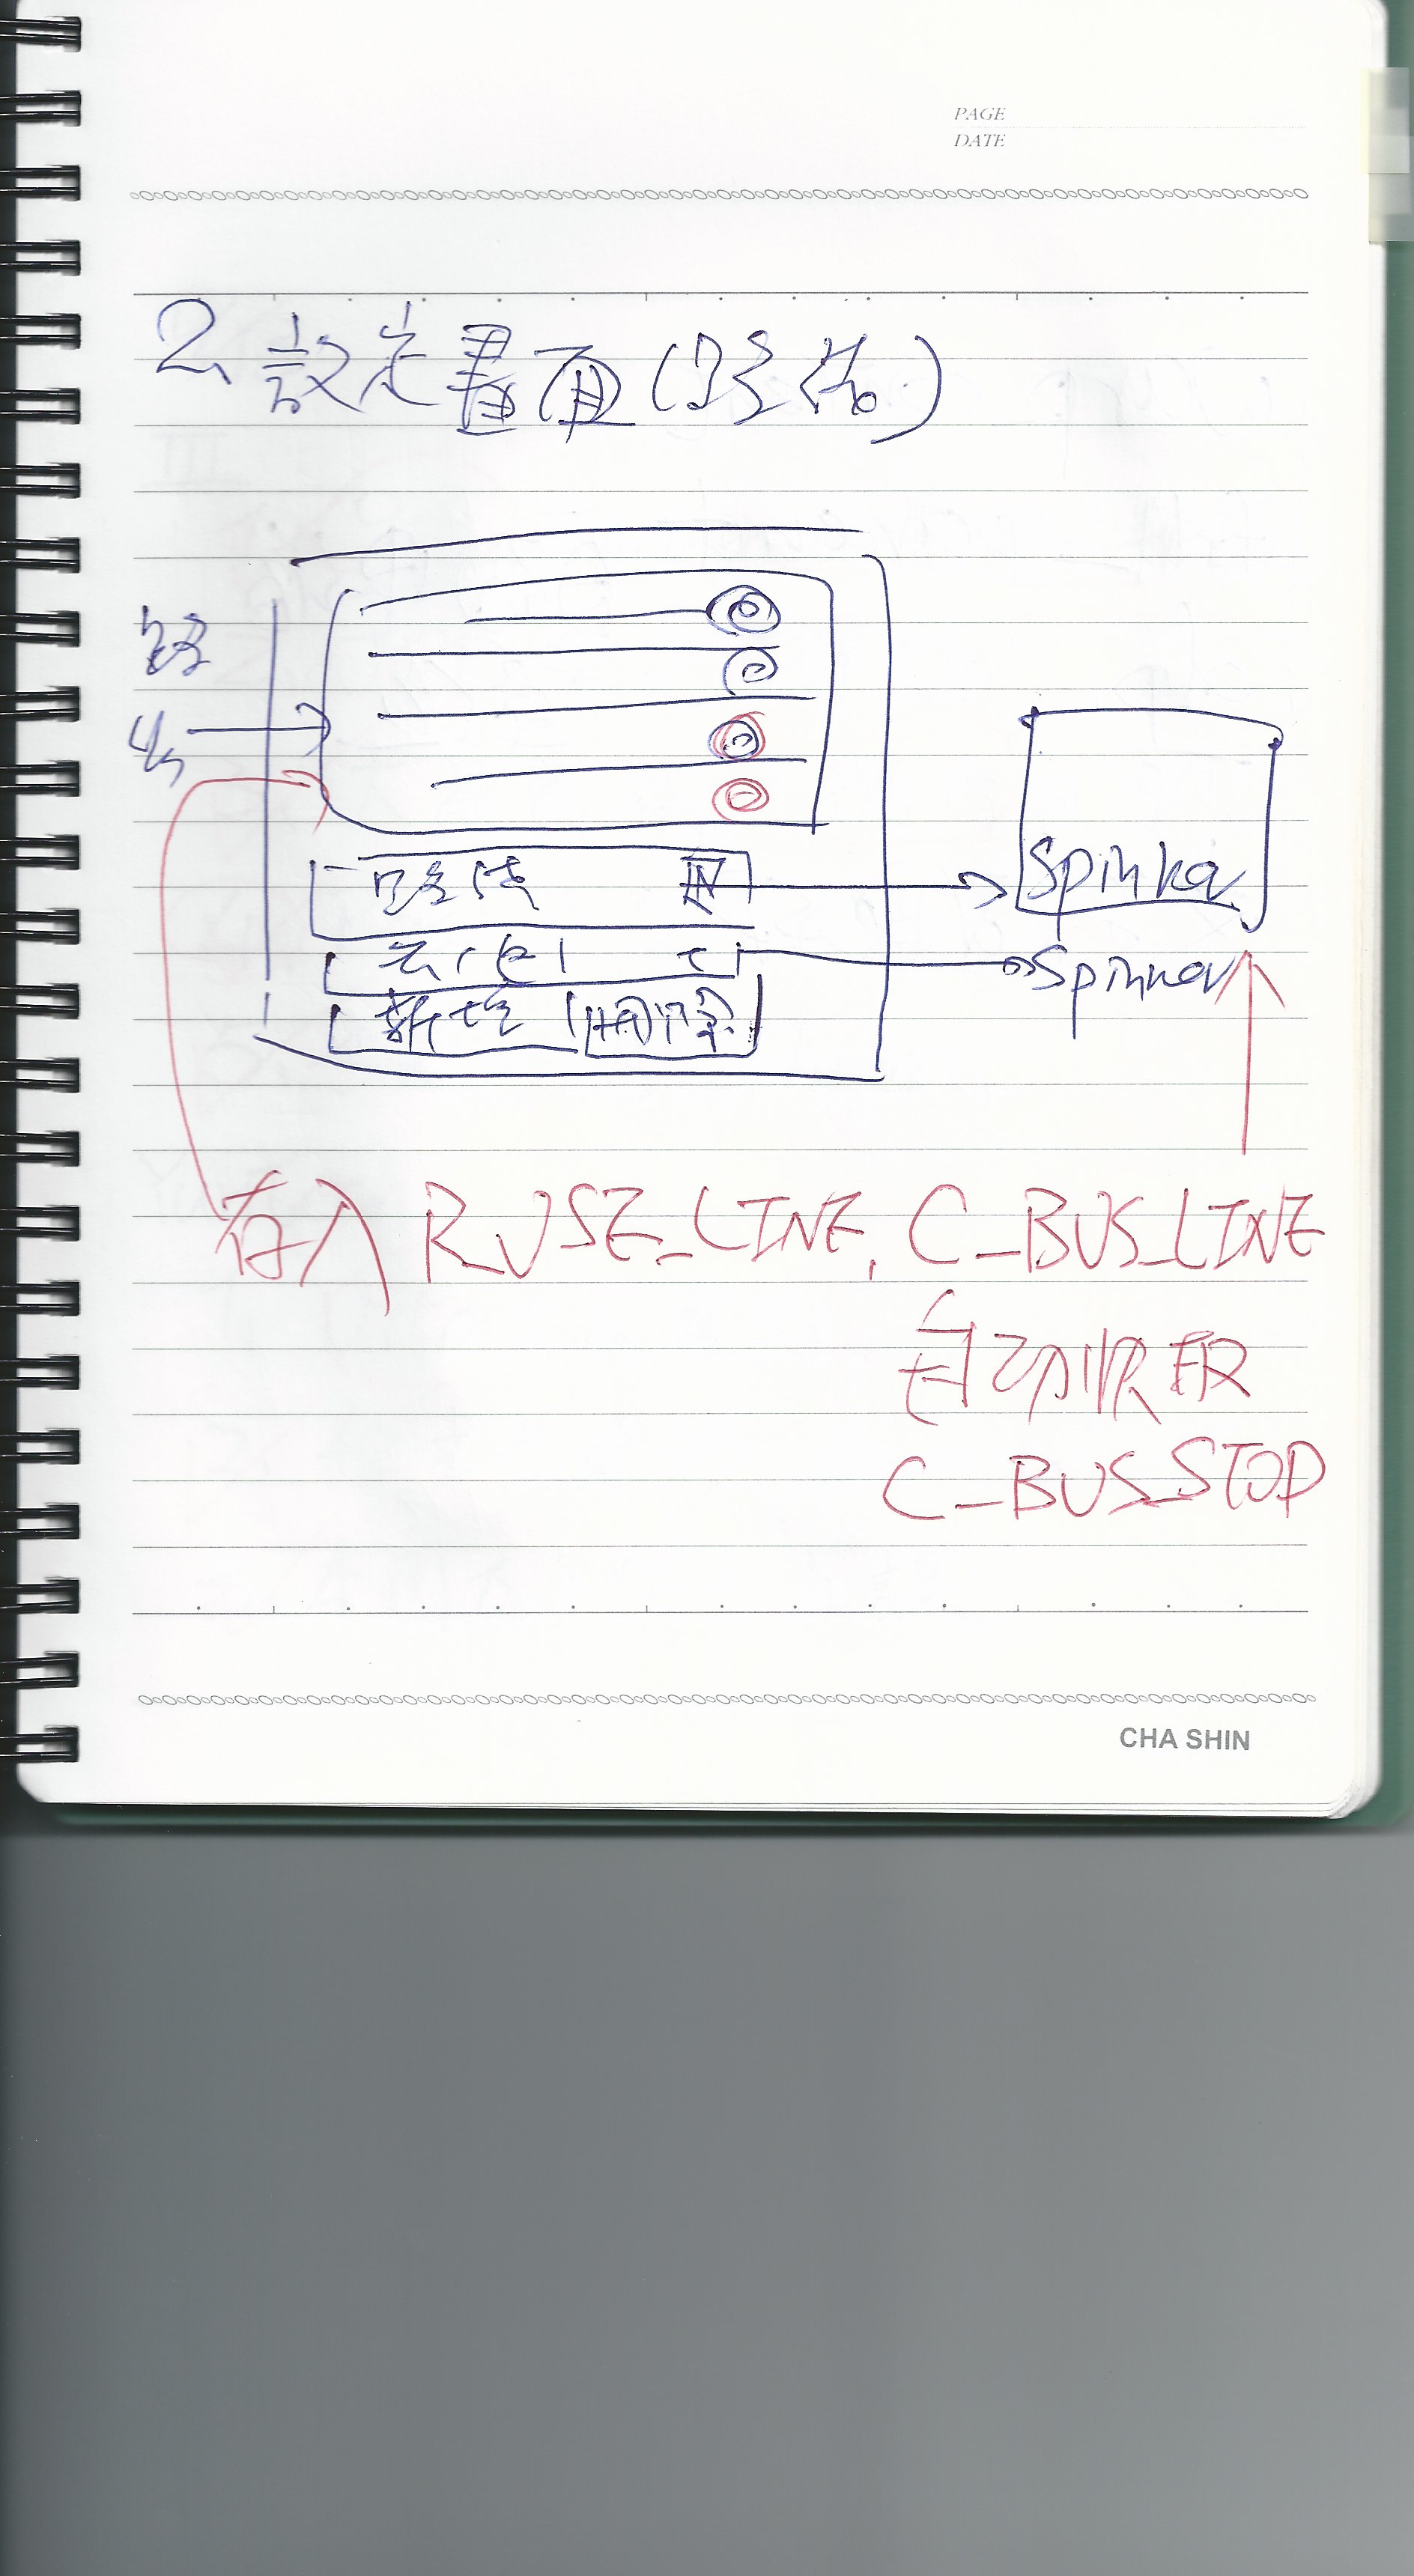 PAGE
DATE
2、設定畫面(路線)
路
線
路線
Spinner
去/返
Spinner
新增 刪除
存入 R_USE_LINE, C_BUS_LINE
自動抓取
C_BUS_STOP
CHA SHIN